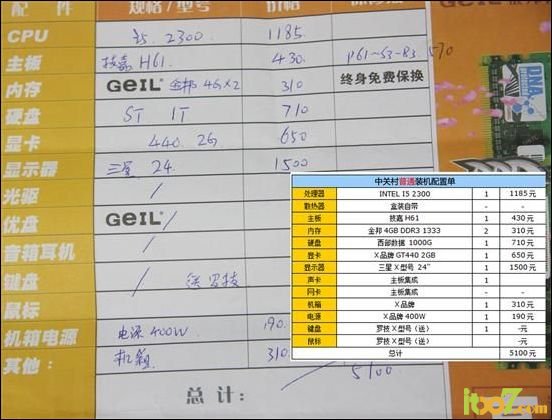 配 件 规格/型号 价格
CPU i5 2300 1185
主板 技嘉 H61 430 P61-S3-B3 570
内存 GeIL 金邦 4G×2 310 终身免费保换
硬盘 ST 1T 710
显卡 440 2G 650
显示器 三星 24 1500
光驱 /
优盘 GeIL /
音箱耳机 /
键盘 / 送罗技
鼠标
机箱电源 电源 400W 190
其他: 机箱 310
总 计: 5100
DNA
中关村普通装机配置单
处理器 INTEL I5 2300 1 1185元
散热器 盒装自带 - -
主板 技嘉 H61 1 430元
内存 金邦 4GB DDR3 1333 2 310元
硬盘 西部数据 1000G 1 710元
显卡 X品牌 GT440 2GB 1 650元
显示器 三星 X型号 24" 1 1500元
声卡 主板集成 1
网卡 主板集成 - -
机箱 X品牌 1 310元
电源 X品牌 400W 1 190元
键盘 罗技 X型号(送) 1 -元
鼠标 罗技 X型号(送) -元
总计 5100元
itooZ.com